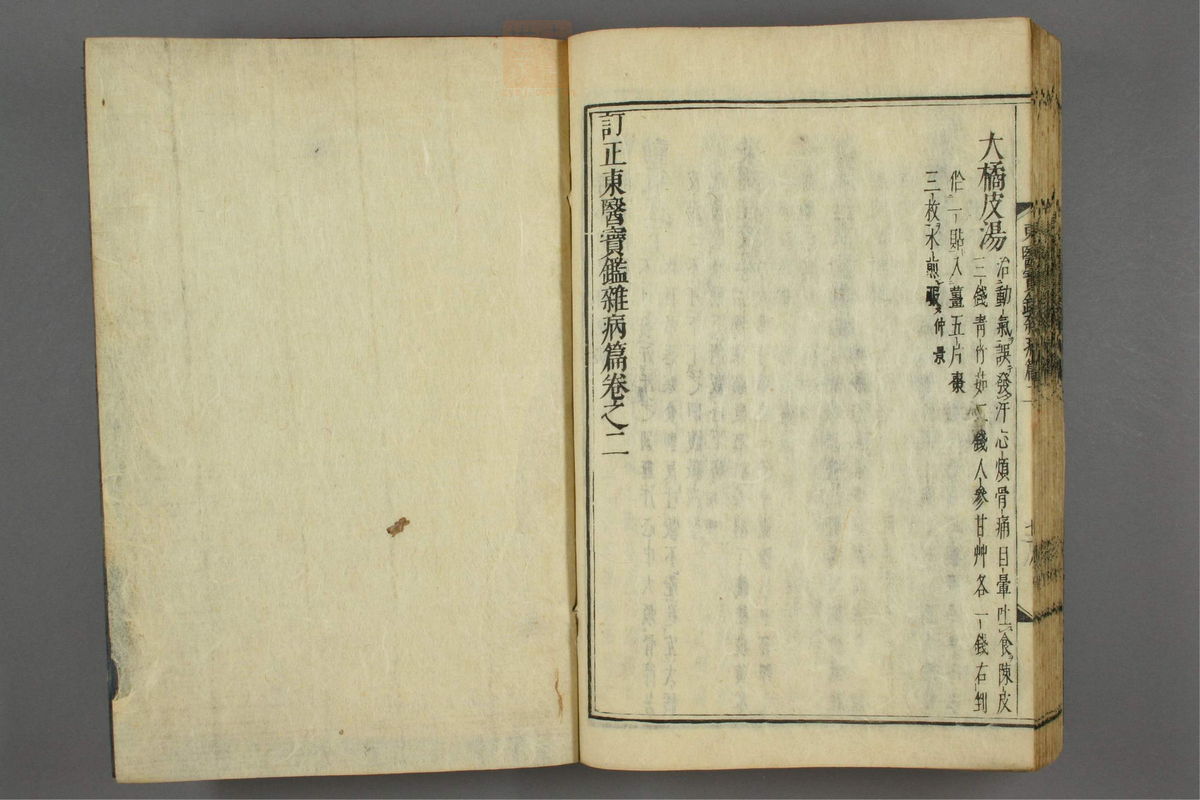 大橘皮湯治動氣誤發汗心煩骨痛目暈吐食陳皮
三錢青竹茹二錢人參甘艸各一錢右剉
作一貼入薑五片棗
三枚水煎服仲景
訂正東醫寶鑑雜病篇卷之二
東醫寶鑑